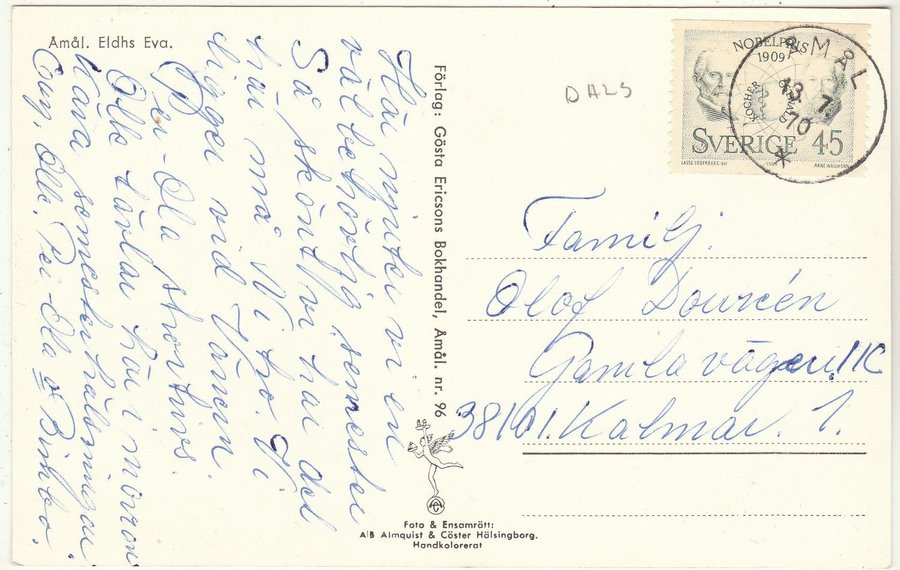 Åmål. Eldhs Eva.
Här njuter vi en
välbehövlig semester
Så skönt vi har det
här må Ni tro. Vi
ligger vid Vänern.
Per-Ola stortrivs.
Olle tävlar här i morron
Kära semesterhälsningar
Guy, Olle, Per-Ola o Bimbo.
Förlag: Gösta Ericsons Bokhandel, Åmål. nr. 96
Foto & Ensamrätt:
A/B Almquist & Cöster Hälsingborg.
Handkolorerat
DALS
NOBELPRIS
1909
KOCHER
OSTWALD
SVERIGE 45
LASSE SÖDERBERG del
ARNE WALLHORN
ÅMÅL
13 7
70
Familj.
Olof Dourcén
Gamla vägen 11C
38101. Kalmar. 1.